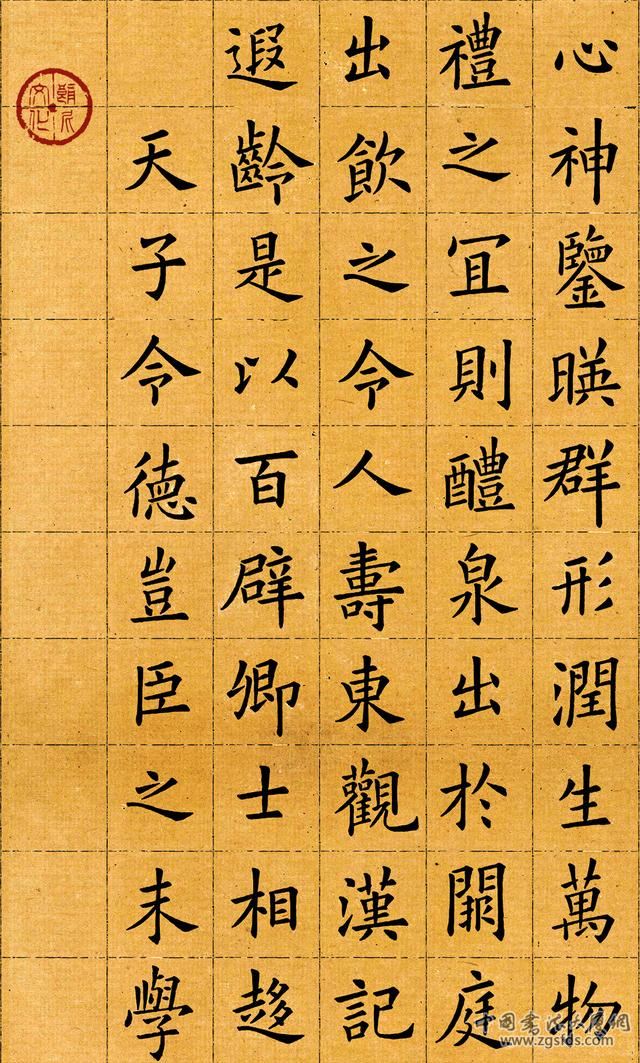 心神鑒暎群形潤生萬物
禮之冝則醴泉出於闕庭
出飲之令人壽東觀漢記
遐齡是以百辟卿士相趍
天子令德豈臣之末學
中国书法大展网
www.zgsfds.com